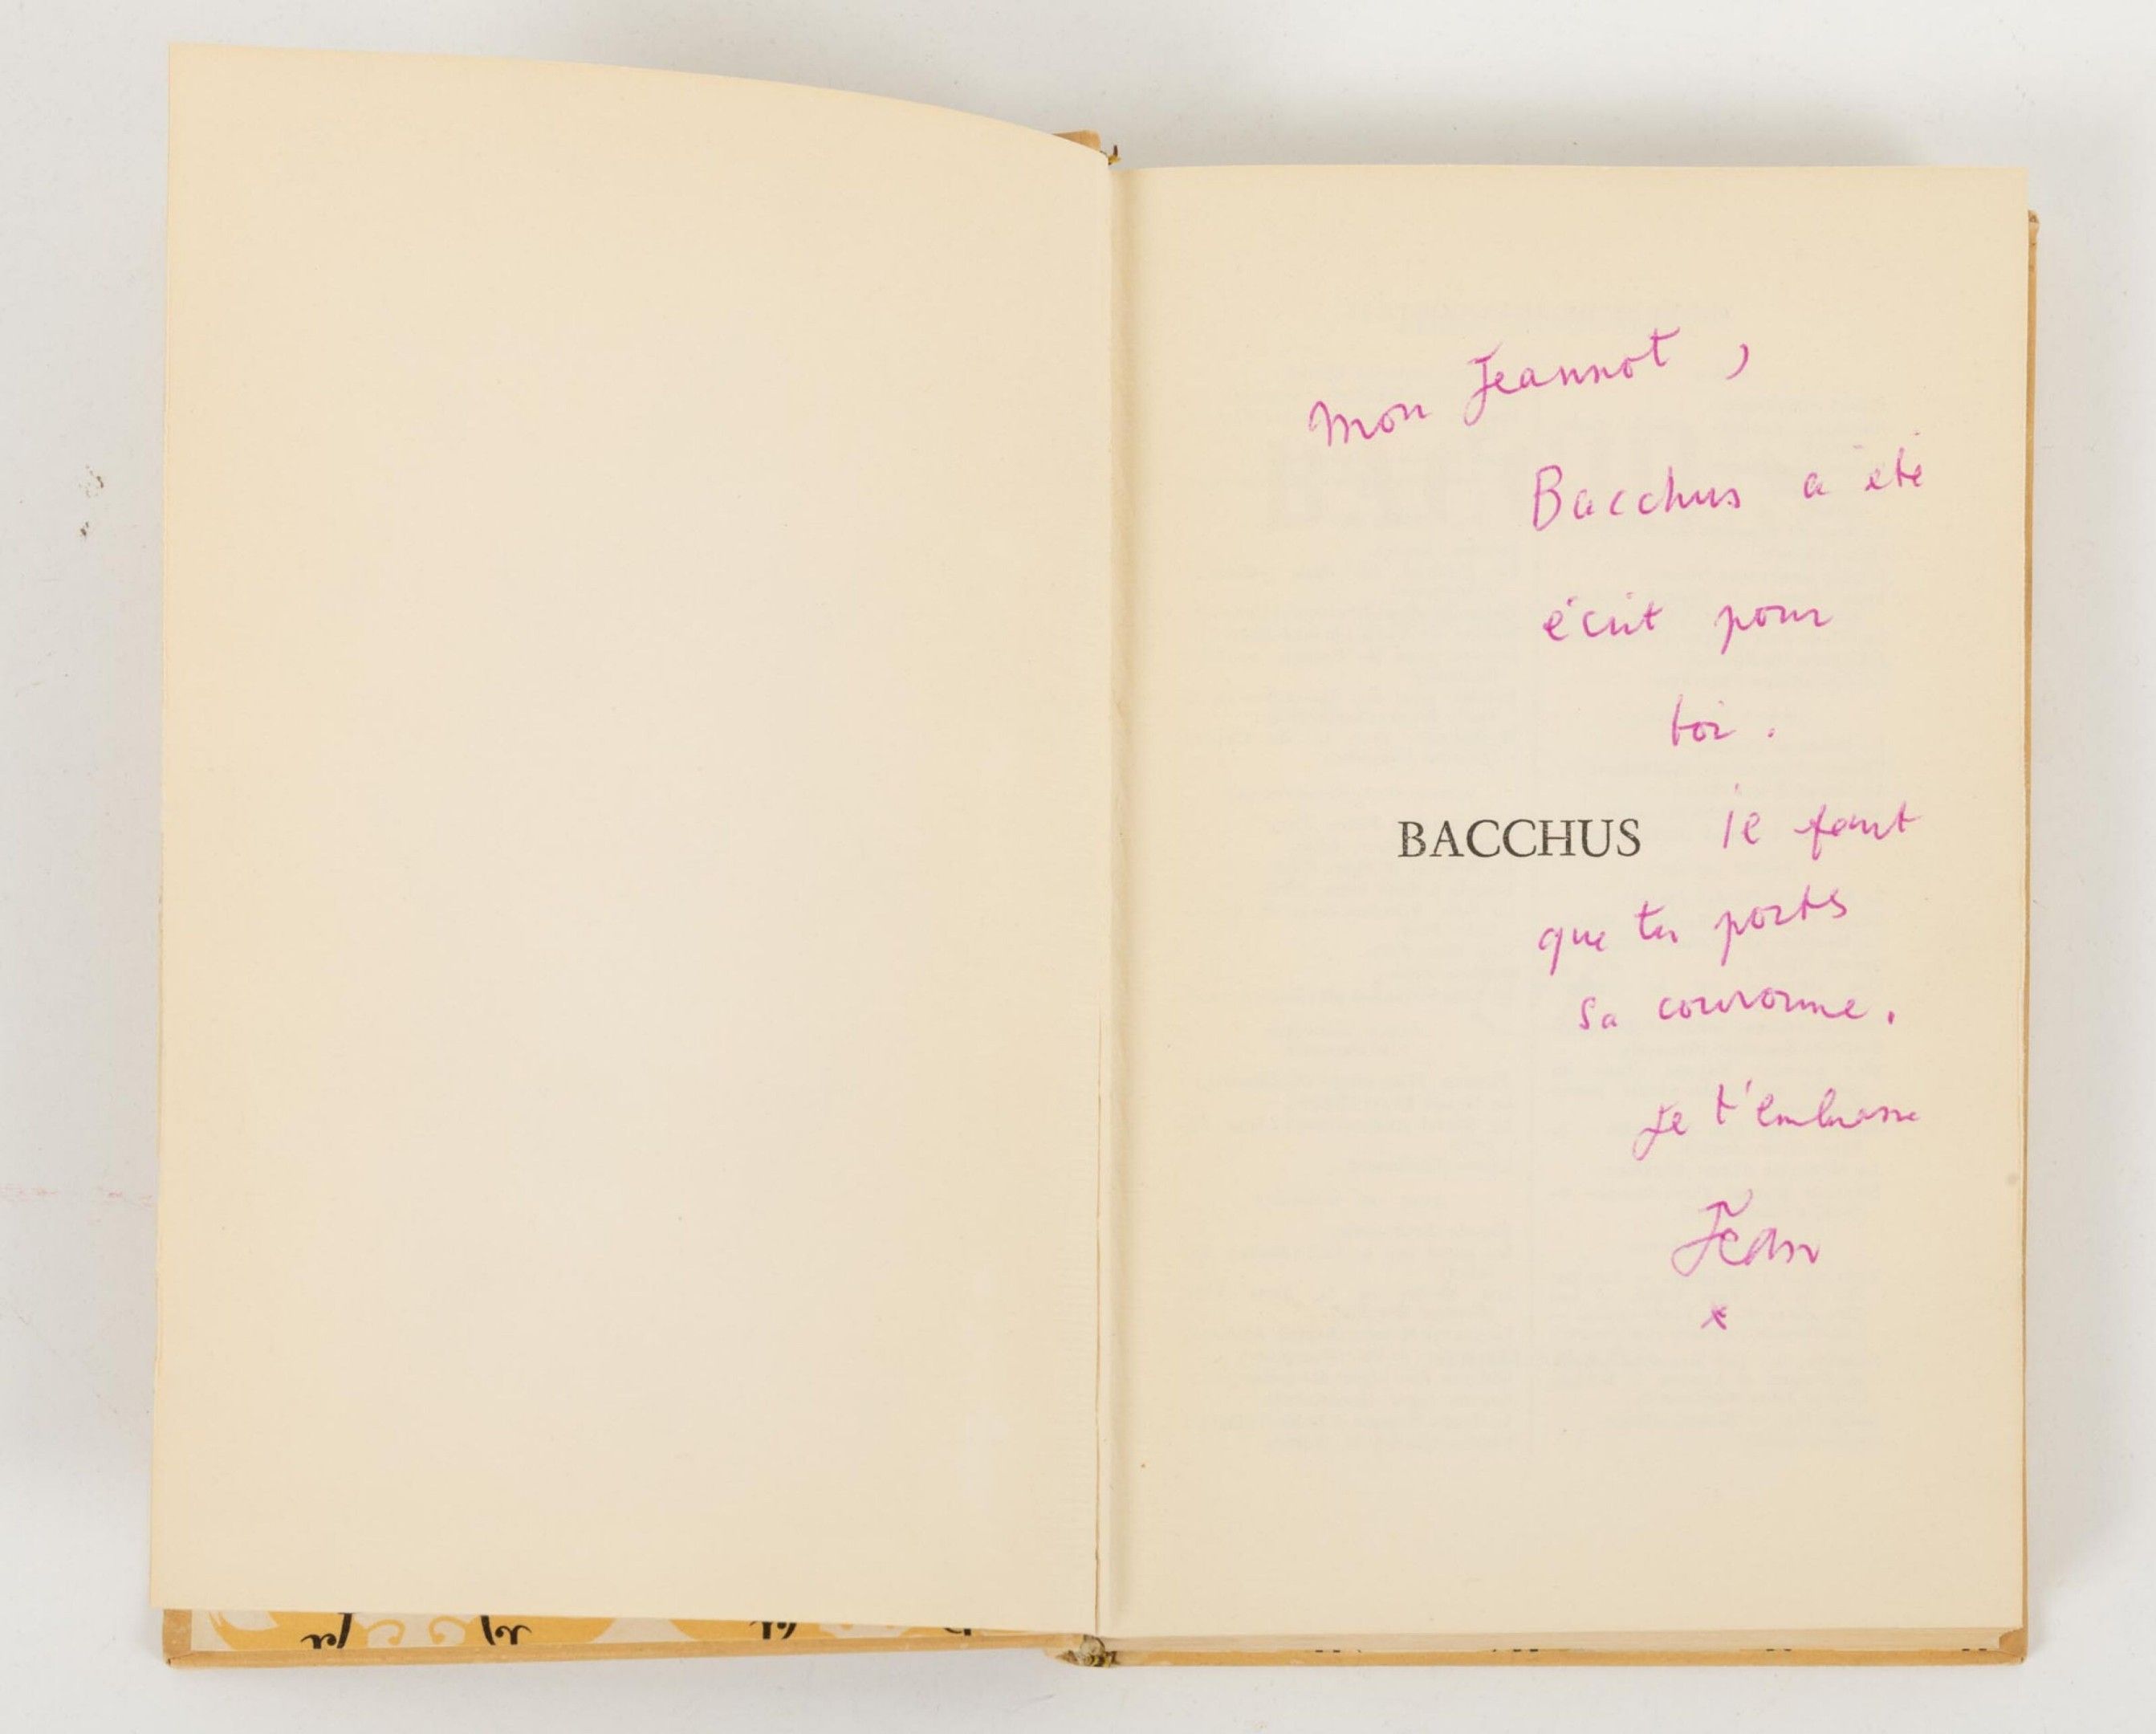 Mon Jeannot,
Bacchus a été
écrit pour
toi.
BACCHUS
il faut
que tu portes
sa couronne.
Je t'embrasse
Jean
*